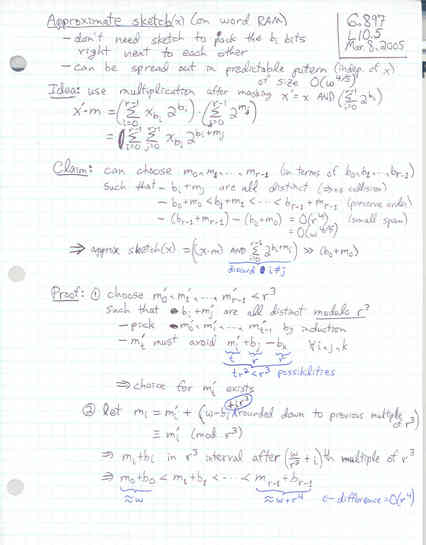 Approximate sketch(x) (on word RAM)
6.897
L10.5
Mar. 8, 2005
- don't need sketch to pack the bᵢ bits
right next to each other
- can be spread out in predictable pattern (indep. of x)
of size O(w^(4/5))
Idea: use multiplication after masking x' = x AND (Σ_{i=0}^{r-1} 2^{bᵢ})
x'·m = (Σ_{i=0}^{r-1} x_{bᵢ} 2^{bᵢ}) · (Σ_{j=0}^{r-1} 2^{mⱼ})
= Σ_{i=0}^{r-1} Σ_{j=0}^{r-1} x_{bᵢ} 2^{bᵢ+mⱼ}
Claim: can choose m₀, m₁, ..., m_{r-1} (in terms of b₀, b₁, ..., b_{r-1})
such that - bᵢ + mⱼ are all distinct (⇒ no collision)
- b₀+m₀ < b₁+m₁ < ... < b_{r-1}+m_{r-1} (preserve order)
- (b_{r-1}+m_{r-1}) - (b₀+m₀) = O(r⁴) (small span)
= O(w^{4/5})
⇒ approx sketch(x) = [(x·m) AND Σ_{i=0}^{r-1} 2^{bᵢ+mᵢ}] ≫ (b₀+m₀)
discard i≠j
Proof: ① choose m₀', m₁', ..., m_{r-1}' < r³
such that bᵢ + mⱼ' are all distinct modulo r³
- pick m₀', m₁', ..., m_{t-1}' by induction
- m_t' must avoid mᵢ' + bⱼ - b_k ∀ i, j, k
t r r
tr² < r³ possibilities
⇒ choice for mᵢ' exists
② let mᵢ = mᵢ' + (w - bᵢ + ir³) rounded down to previous multiple
of r³)
≡ mᵢ' (mod r³)
⇒ mᵢ + bᵢ in r³ interval after (w/r³ + i)th multiple of r³
⇒ m₀+b₀ < m₁+b₁ < ... < m_{r-1}+b_{r-1}
≈w ≈w+r⁴ ← difference = O(r⁴)